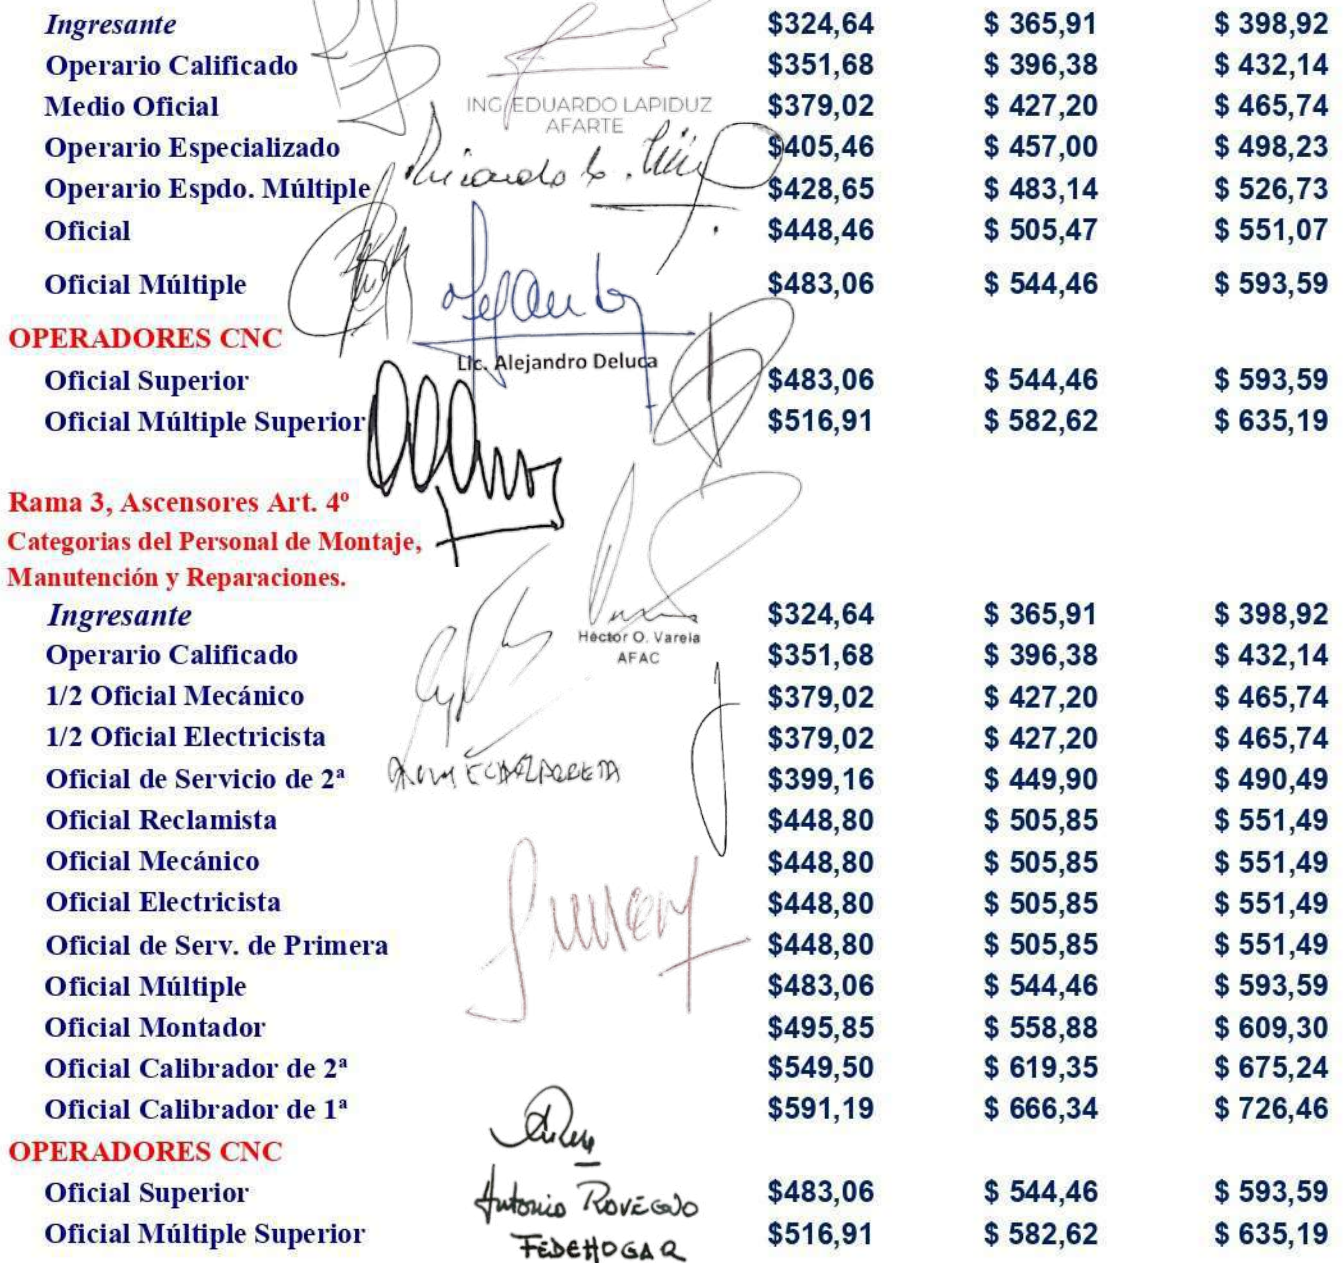 Ingresante $324,64 $ 365,91 $ 398,92
Operario Calificado $351,68 $ 396,38 $ 432,14
Medio Oficial $379,02 $ 427,20 $ 465,74
ING EDUARDO LAPIDUZ
AFARTE
Operario Especializado $405,46 $ 457,00 $ 498,23
Operario Espdo. Múltiple $428,65 $ 483,14 $ 526,73
Oficial $448,46 $ 505,47 $ 551,07
Oficial Múltiple $483,06 $ 544,46 $ 593,59
OPERADORES CNC
Lic. Alejandro Deluca
Oficial Superior $483,06 $ 544,46 $ 593,59
Oficial Múltiple Superior $516,91 $ 582,62 $ 635,19
Rama 3, Ascensores Art. 4º
Categorias del Personal de Montaje,
Manutención y Reparaciones.
Ingresante $324,64 $ 365,91 $ 398,92
Héctor O. Varela
AFAC
Operario Calificado $351,68 $ 396,38 $ 432,14
1/2 Oficial Mecánico $379,02 $ 427,20 $ 465,74
1/2 Oficial Electricista $379,02 $ 427,20 $ 465,74
Oficial de Servicio de 2ª $399,16 $ 449,90 $ 490,49
Oficial Reclamista $448,80 $ 505,85 $ 551,49
Oficial Mecánico $448,80 $ 505,85 $ 551,49
Oficial Electricista $448,80 $ 505,85 $ 551,49
Oficial de Serv. de Primera $448,80 $ 505,85 $ 551,49
Oficial Múltiple $483,06 $ 544,46 $ 593,59
Oficial Montador $495,85 $ 558,88 $ 609,30
Oficial Calibrador de 2ª $549,50 $ 619,35 $ 675,24
Oficial Calibrador de 1ª $591,19 $ 666,34 $ 726,46
OPERADORES CNC
Oficial Superior $483,06 $ 544,46 $ 593,59
Antonio ROVEGNO
Oficial Múltiple Superior $516,91 $ 582,62 $ 635,19
FEDEHOGAR